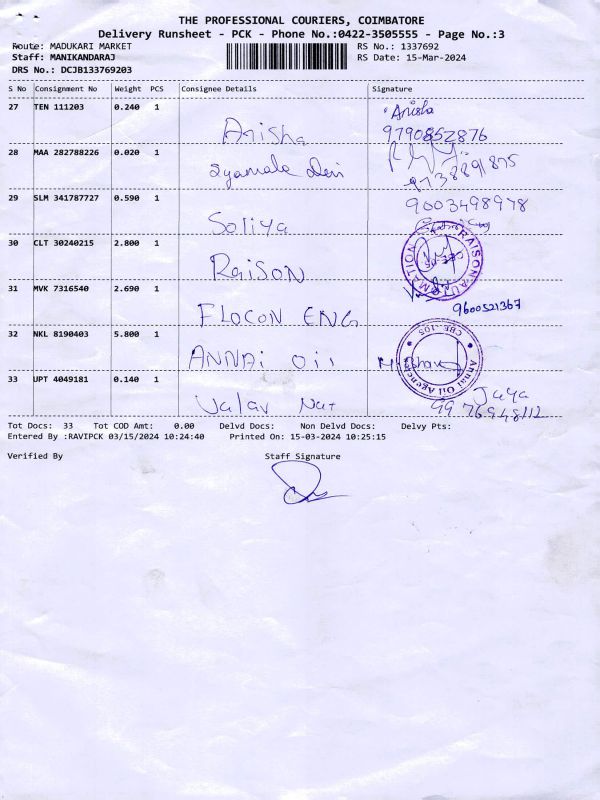 THE PROFESSIONAL COURIERS, COIMBATORE
Delivery Runsheet - PCK - Phone No.:0422-3505555 - Page No.:3
Route: MADUKARI MARKET
RS No.: 1337692
Staff: MANIKANDARAJ
RS Date: 15-Mar-2024
DRS No.: DCJB133769203
S No Consignment No Weight PCS Consignee Details Signature
27 TEN 111203 0.240 1 Anisha Anisha
9790852876
28 MAA 282788226 0.020 1 Syamala Devi
9738891875
29 SLM 341787727 0.590 1 Soliya 9003498978
30 CLT 30240215 2.800 1 RAISON RAISON AUTOMATION
31 MVK 7316540 2.690 1 FLOCON ENG 9600521367
32 NKL 8190403 5.800 1 ANNAI Oil Annai Oil Agency CBE-105
33 UPT 4049181 0.140 1 Jaya
99 76948112
Tot Docs: 33 Tot COD Amt: 0.00 Delvd Docs: Non Delvd Docs: Delvy Pts:
Entered By :RAVIPCK 03/15/2024 10:24:40 Printed On: 15-03-2024 10:25:15
Verified By Staff Signature